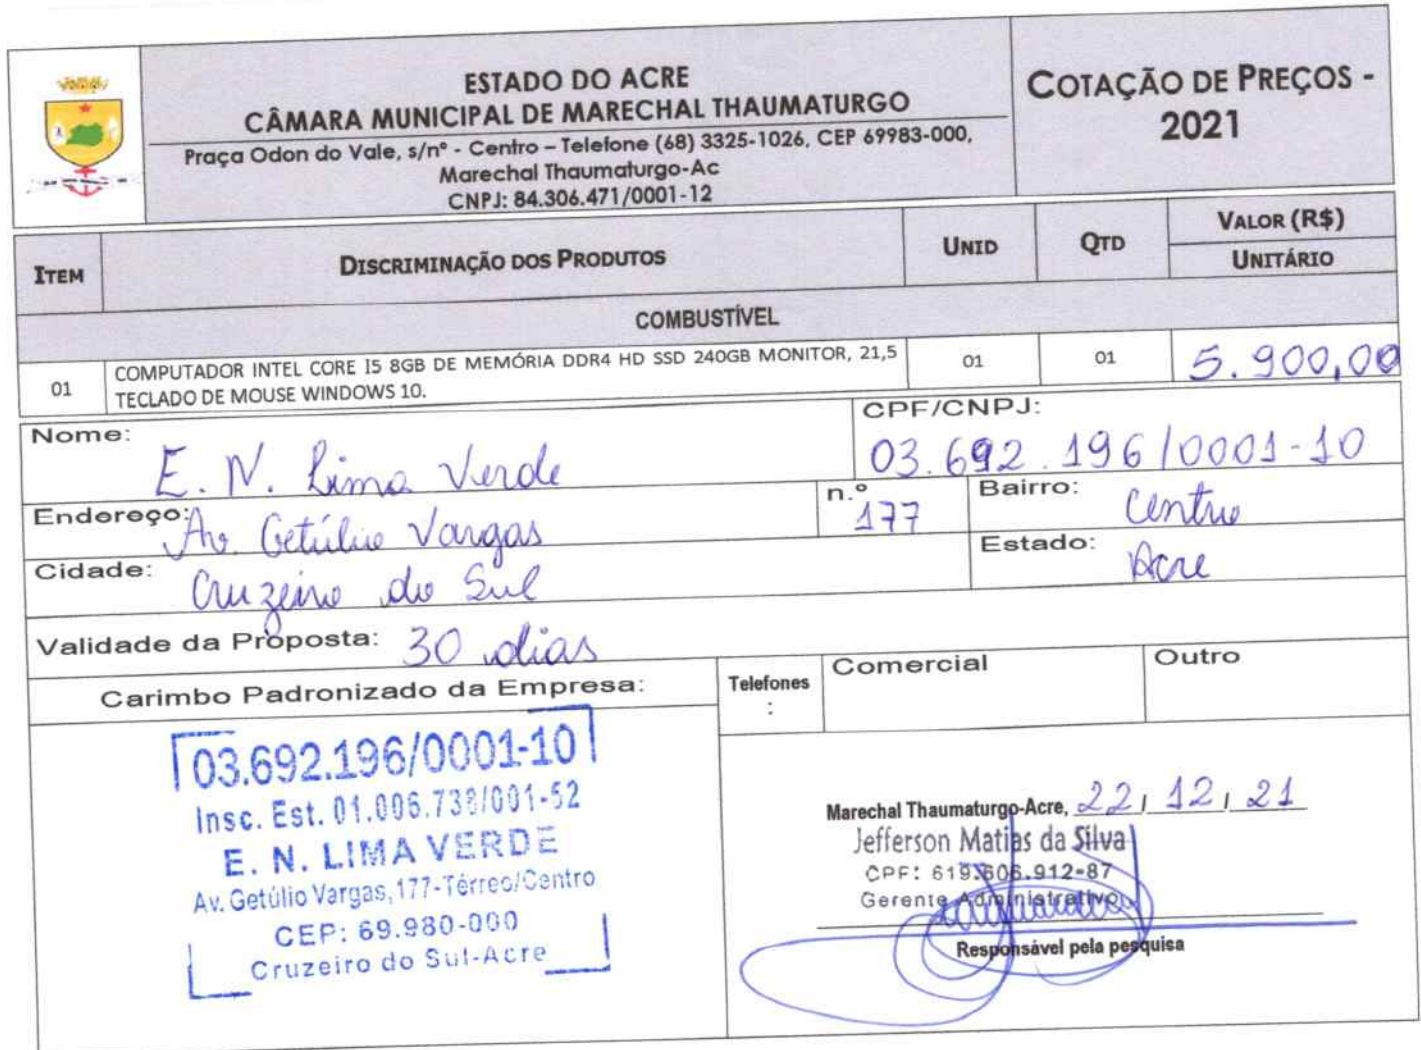 ESTADO DO ACRE
CÂMARA MUNICIPAL DE MARECHAL THAUMATURGO
Praça Odon do Vale, s/nº - Centro – Telefone (68) 3325-1026, CEP 69983-000,
Marechal Thaumaturgo-Ac
CNPJ: 84.306.471/0001-12
COTAÇÃO DE PREÇOS -
2021
ITEM
DISCRIMINAÇÃO DOS PRODUTOS
UNID
QTD
VALOR (R$)
UNITÁRIO
COMBUSTÍVEL
01
COMPUTADOR INTEL CORE I5 8GB DE MEMÓRIA DDR4 HD SSD 240GB MONITOR, 21,5
TECLADO DE MOUSE WINDOWS 10.
01
01
5.900,00
Nome:
E. N. Lima Verde
CPF/CNPJ:
03.692.196/0001-10
Endereço:
Av. Getúlio Vargas
n.º
177
Bairro:
Centro
Cidade:
Cruzeiro do Sul
Estado:
Acre
Validade da Proposta: 30 dias
Carimbo Padronizado da Empresa:
Telefones
:
Comercial
Outro
03.692.196/0001-10
Insc. Est. 01.006.738/001-52
E. N. LIMA VERDE
Av. Getúlio Vargas, 177-Térreo/Centro
CEP: 69.980-000
Cruzeiro do Sul-Acre
Marechal Thaumaturgo-Acre, 22/12/21
Jefferson Matias da Silva
CPF: 619.606.912-87
Gerente Administrativo
Responsável pela pesquisa